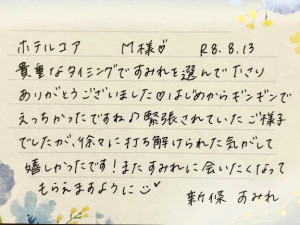 ホテルコア M様♡ R8.8.13
貴重なタイミングですみれを選んで下さり
ありがとうございました♡はじめからギンギンで
えっちかったですね♪緊張されていたご様子
でしたが、徐々に打ち解けられた気がして
嬉しかったです！またすみれに会いたくなって
もらえますように
新條 すみれ